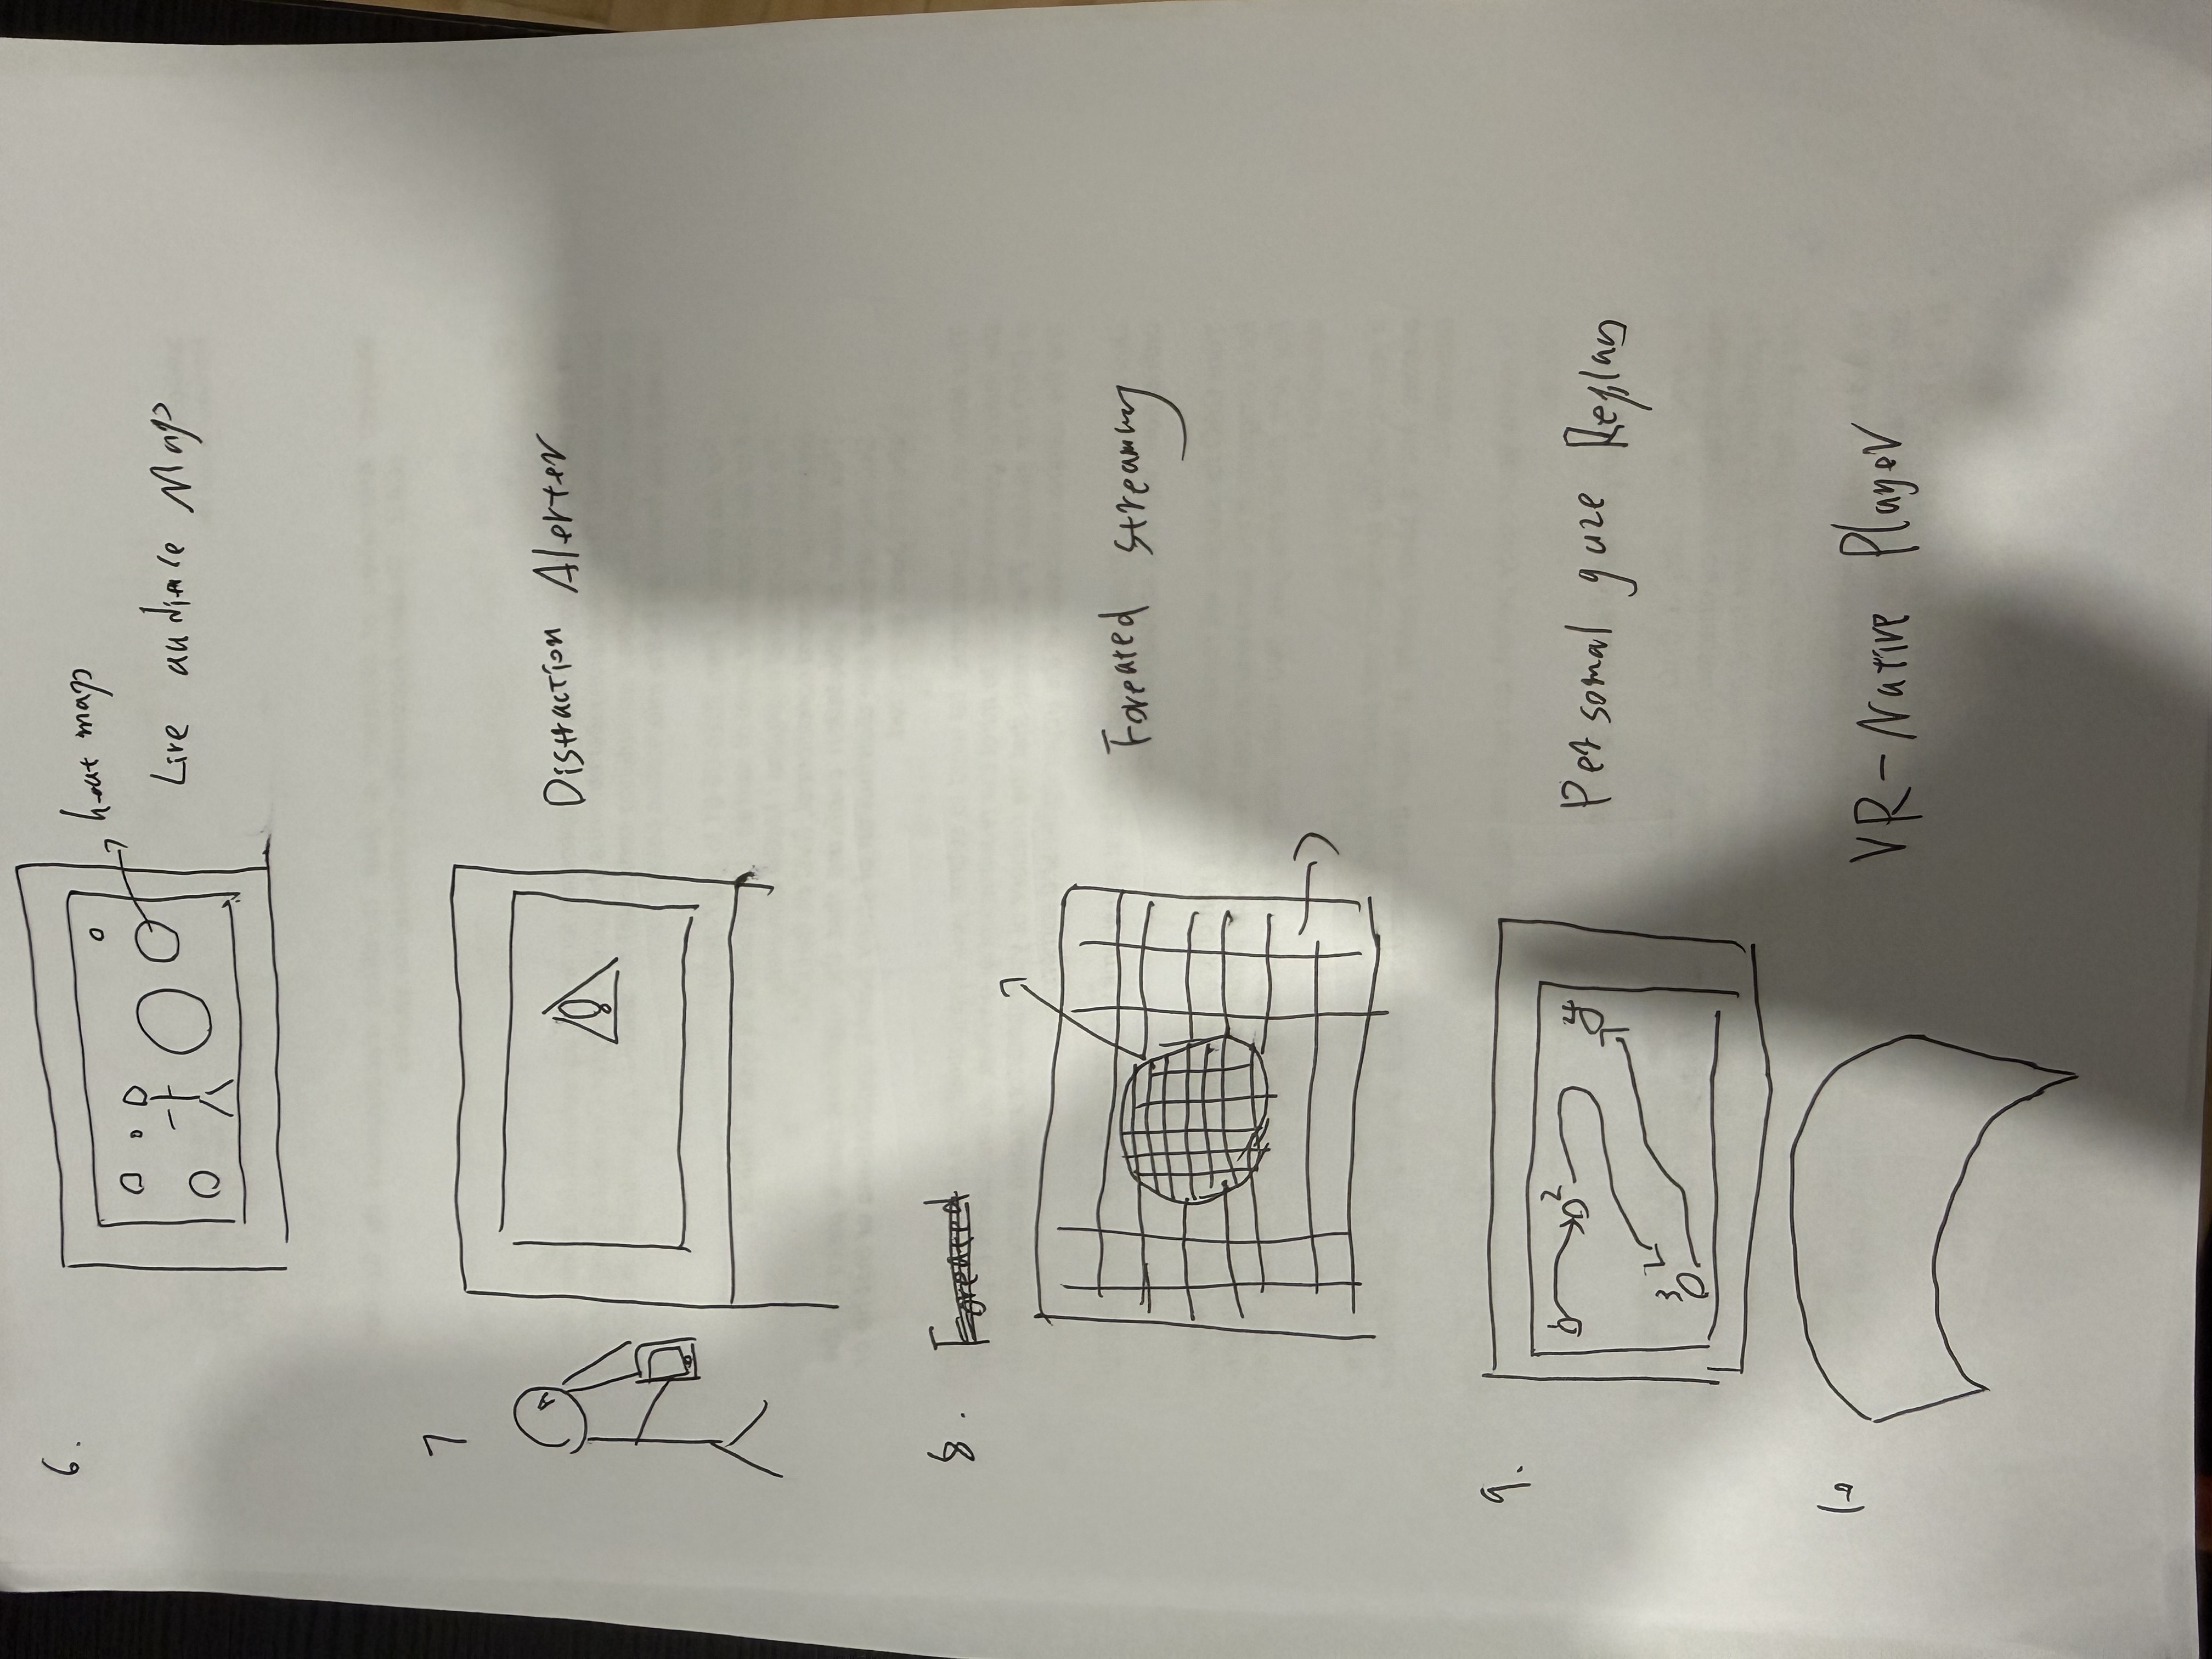 6.
heat map
Live audience Map
7
Distraction Alerter
8.
Foveated
Foveated streaming
9.
1
2
3
4
Personal gaze Replay
10
VR-Native Player